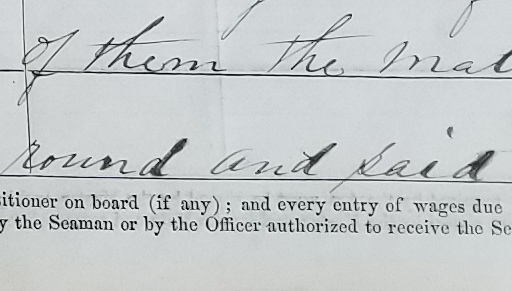 of them the mat
round and said
itioner on board (if any); and every entry of wages due
y the Seaman or by the Officer authorized to receive the Se